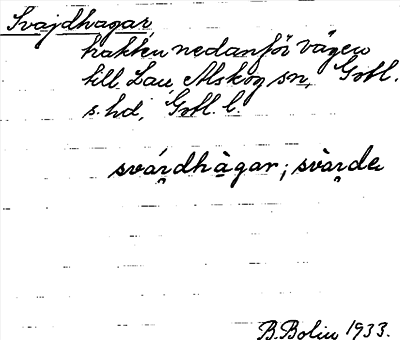 Svajdhagar
trakten nedanför vägen
till Lau, Alskog sn, Gotl.
s. hd, Gotl. l.
svárdhàgar; svàrde
B. Bolin 1933.